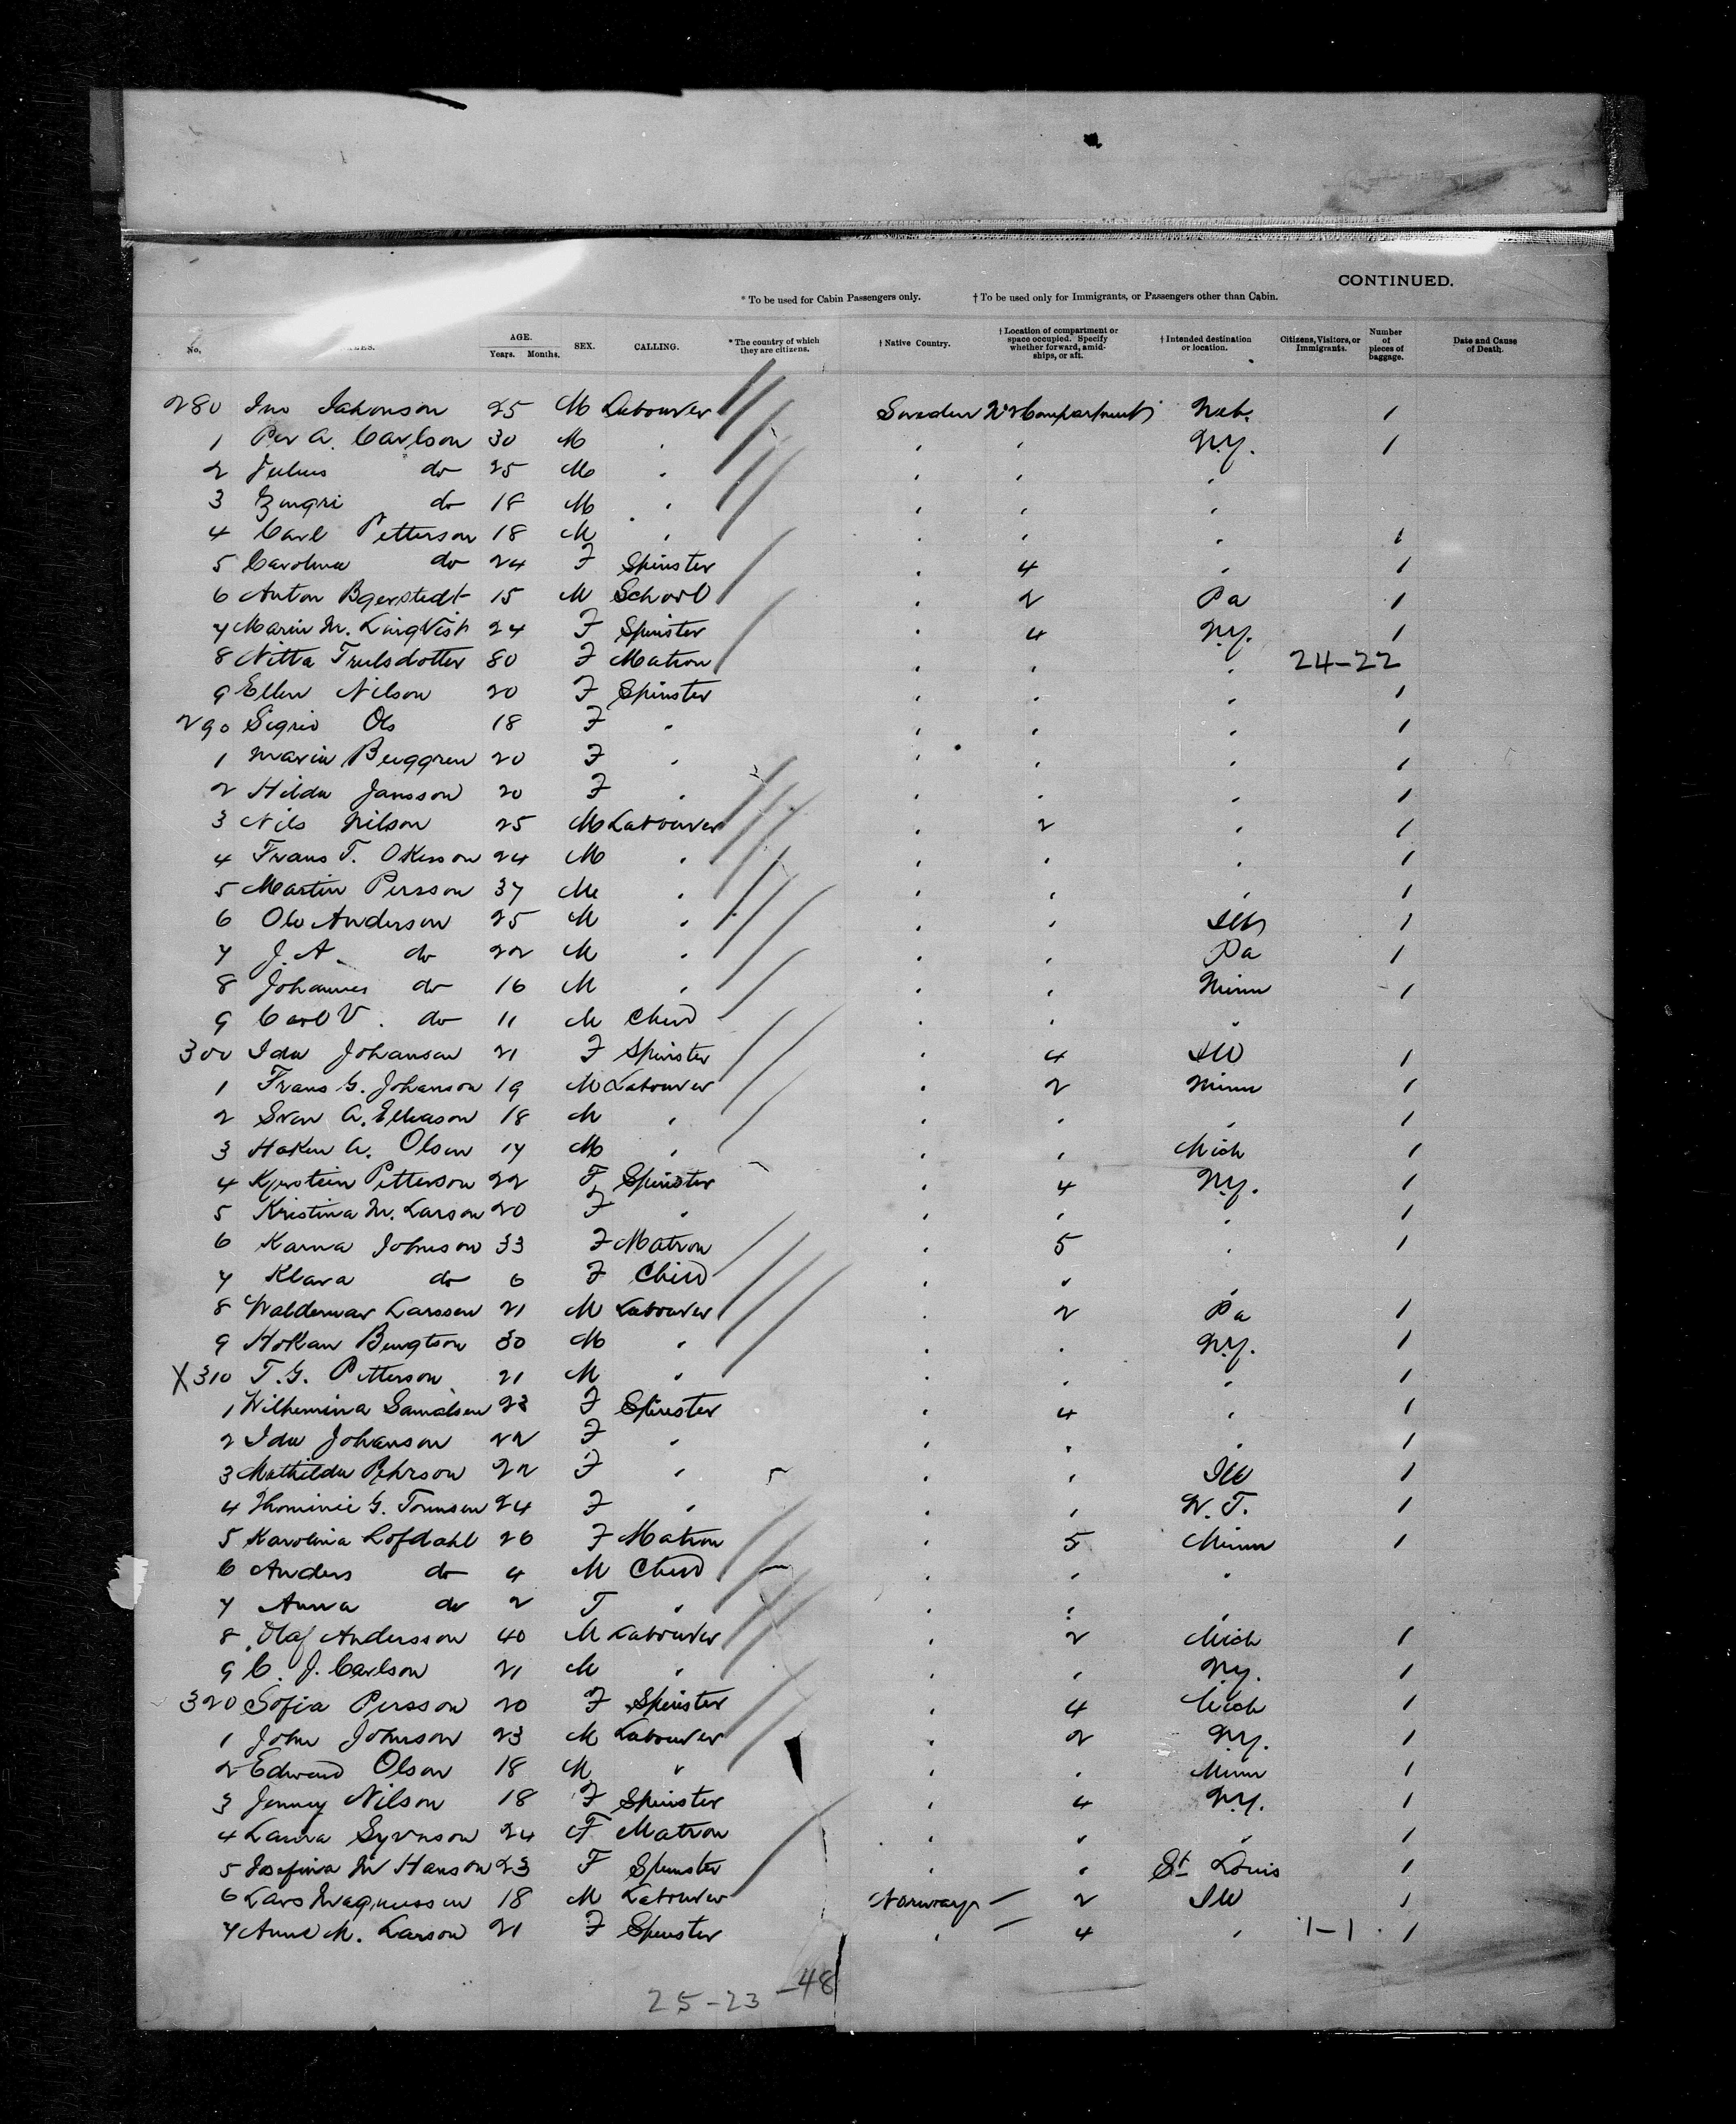 CONTINUED.
* To be used for Cabin Passengers only. † To be used only for Immigrants, or Passengers other than Cabin.
No. AGE. Years. Months. SEX. CALLING. * The country of which they are citizens. † Native Country. † Location of compartment or space occupied. Specify whether forward, amidships, or aft. † Intended destination or location. Citizens, Visitors, or Immigrants. Number of pieces of baggage. Date and Cause of Death.
280 Jno Jahonson 25 M Labourer Sweden No 2 Compartment Neb. 1
1 Per A. Carlson 30 M " " " N.Y. 1
2 Julius do 25 M " " " "
3 do 18 M " " " "
4 Carl Petterson 18 M " " " " 1
5 Carolina do 24 F Spinster " 4 " 1
6 Anton Bgerstedt 15 M School " 2 Pa 1
7 Maria M. LingVist 24 F Spinster " 4 N.Y. 1
8 Nitta Trulsdotter 80 F Matron " " " 24-22
9 Ellen Nilson 20 F Spinster " " " 1
290 Sigrid Ols 18 F " " " " 1
1 Maria Berggren 20 F " " " " 1
2 Hilda Jansson 20 F " " " " 1
3 Nils Nilson 25 M Labourer " 2 " 1
4 Frans T. Okerson 24 M " " " " 1
5 Martin Persson 37 M " " " " 1
6 Ole Anderson 25 M " " " Ill 1
7 J. A. do 22 M " " " Pa 1
8 Johannes do 16 M " " " Minn 1
9 Carl V. do 11 M Child " " "
300 Ida Johanson 21 F Spinster " 4 Ill 1
1 Frans G. Johanson 19 M Labourer " 2 Minn 1
2 Sven A. Elleason 18 M " " " " 1
3 Haken A. Olsen 17 M " " " Mich 1
4 Kjerstein Petterson 22 F Spinster " 4 N.Y. 1
5 Kristina M. Larson 20 F " " " " 1
6 Karna Johnson 33 F Matron " 5 " 1
7 Klara do 6 F Child " " "
8 Waldemar Larsson 21 M Labourer " 2 Pa 1
9 Hokan Bengtson 30 M " " " N.Y. 1
X 310 T. G. Petterson 21 M " " " " 1
1 Wilhemina Samolsen 23 F Spinster " 4 " 1
2 Ida Johanson 22 F " " " " 1
3 Mathilda Pehrson 22 F " " " Ill 1
4 G. Tomnsen 24 F " " " W. T. 1
5 Karolina Lofdahl 26 F Matron " 5 Minn 1
6 Anders do 4 M Child " " "
7 Anna do 2 F " " " "
8 Olaf Andersson 40 M Labourer " 2 Mich 1
9 C. J. Carlson 21 M " " " N.Y. 1
320 Sofia Persson 20 F Spinster " 4 Mich 1
1 John Johnson 23 M Labourer " 2 N.Y. 1
2 Edward Olson 18 M " " " Minn 1
3 Jenny Nilson 18 F Spinster " 4 N.Y. 1
4 Laura Syvnson 24 F Matron " " " 1
5 Josefina M Hanson 23 F Spinster " " St Louis 1
6 Lars Magnussen 18 M Labourer Norway — 2 Ill 1
7 Anne M. Larson 21 F Spinster " — 4 " 1-1 1
25-23 —48